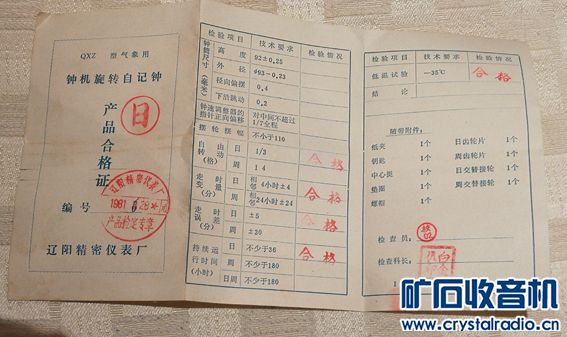 QXZ 型气象用
钟机旋转自记钟
日
产品合格证
辽阳精密仪表厂
1981 6 26
产品检定专章
编号
辽阳精密仪表厂
检验项目 技术要求 检验情况
钟筒尺寸(毫米)
高度 92±0.25
外径 φ93-0.23
径向偏摆 0.4
下沿跳动 0.2
钟速调整器的指针正向偏移 对中间不超过1/7全程
摆轮摆幅 不小于110
自由转动(格) 日 1/3 合格
周 14
走时变量(分) 日 相邻4小时±4 合格
周 相邻24小时±24
走时误差(分) 日 ±5 合格
周 ±20
持续运行时间(小时) 日 不少于36 合格
周 不少于180
日周 不少于180
检验项目 技术要求 检验情况
低温试验 -35℃ 合格
结论
随带附件:
纸夹 1个 日齿轮片 1个
钥匙 1个 周齿轮片 1个
中心挺 1个 日交替接轮 1个
垫圈 1个 周交替接轮 1个
螺帽 1个
检查员:
检02
检查科长:
矿石收音机
www.crystalradio.cn